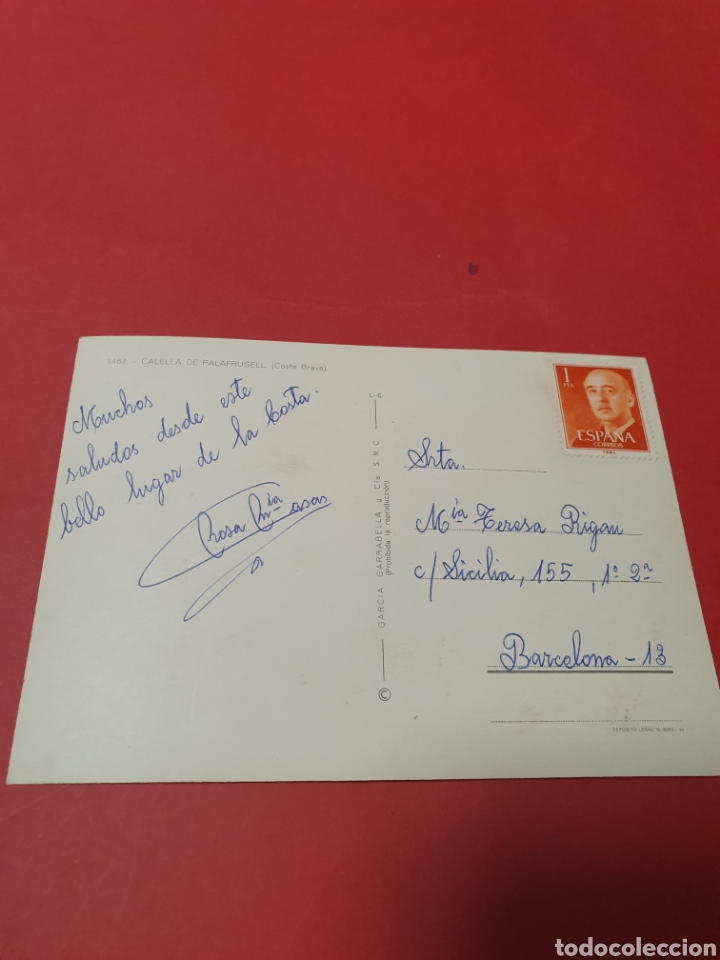 1467 - CALELLA DE PALAFRUGELL (Costa Brava)
Muchos
saludos desde este
bello lugar de la Costa.
Rosa Mía Casas
© GARCIA GARRABELLA y Cía. S.R.C.
(Prohibida la reproducción)
1 PTA
ESPAÑA
CORREOS
Srta.
Mía Teresa Rigau
c/ Sicilia, 155, 1º 2ª
Barcelona - 13
DEPOSITO LEGAL B.
todocoleccion